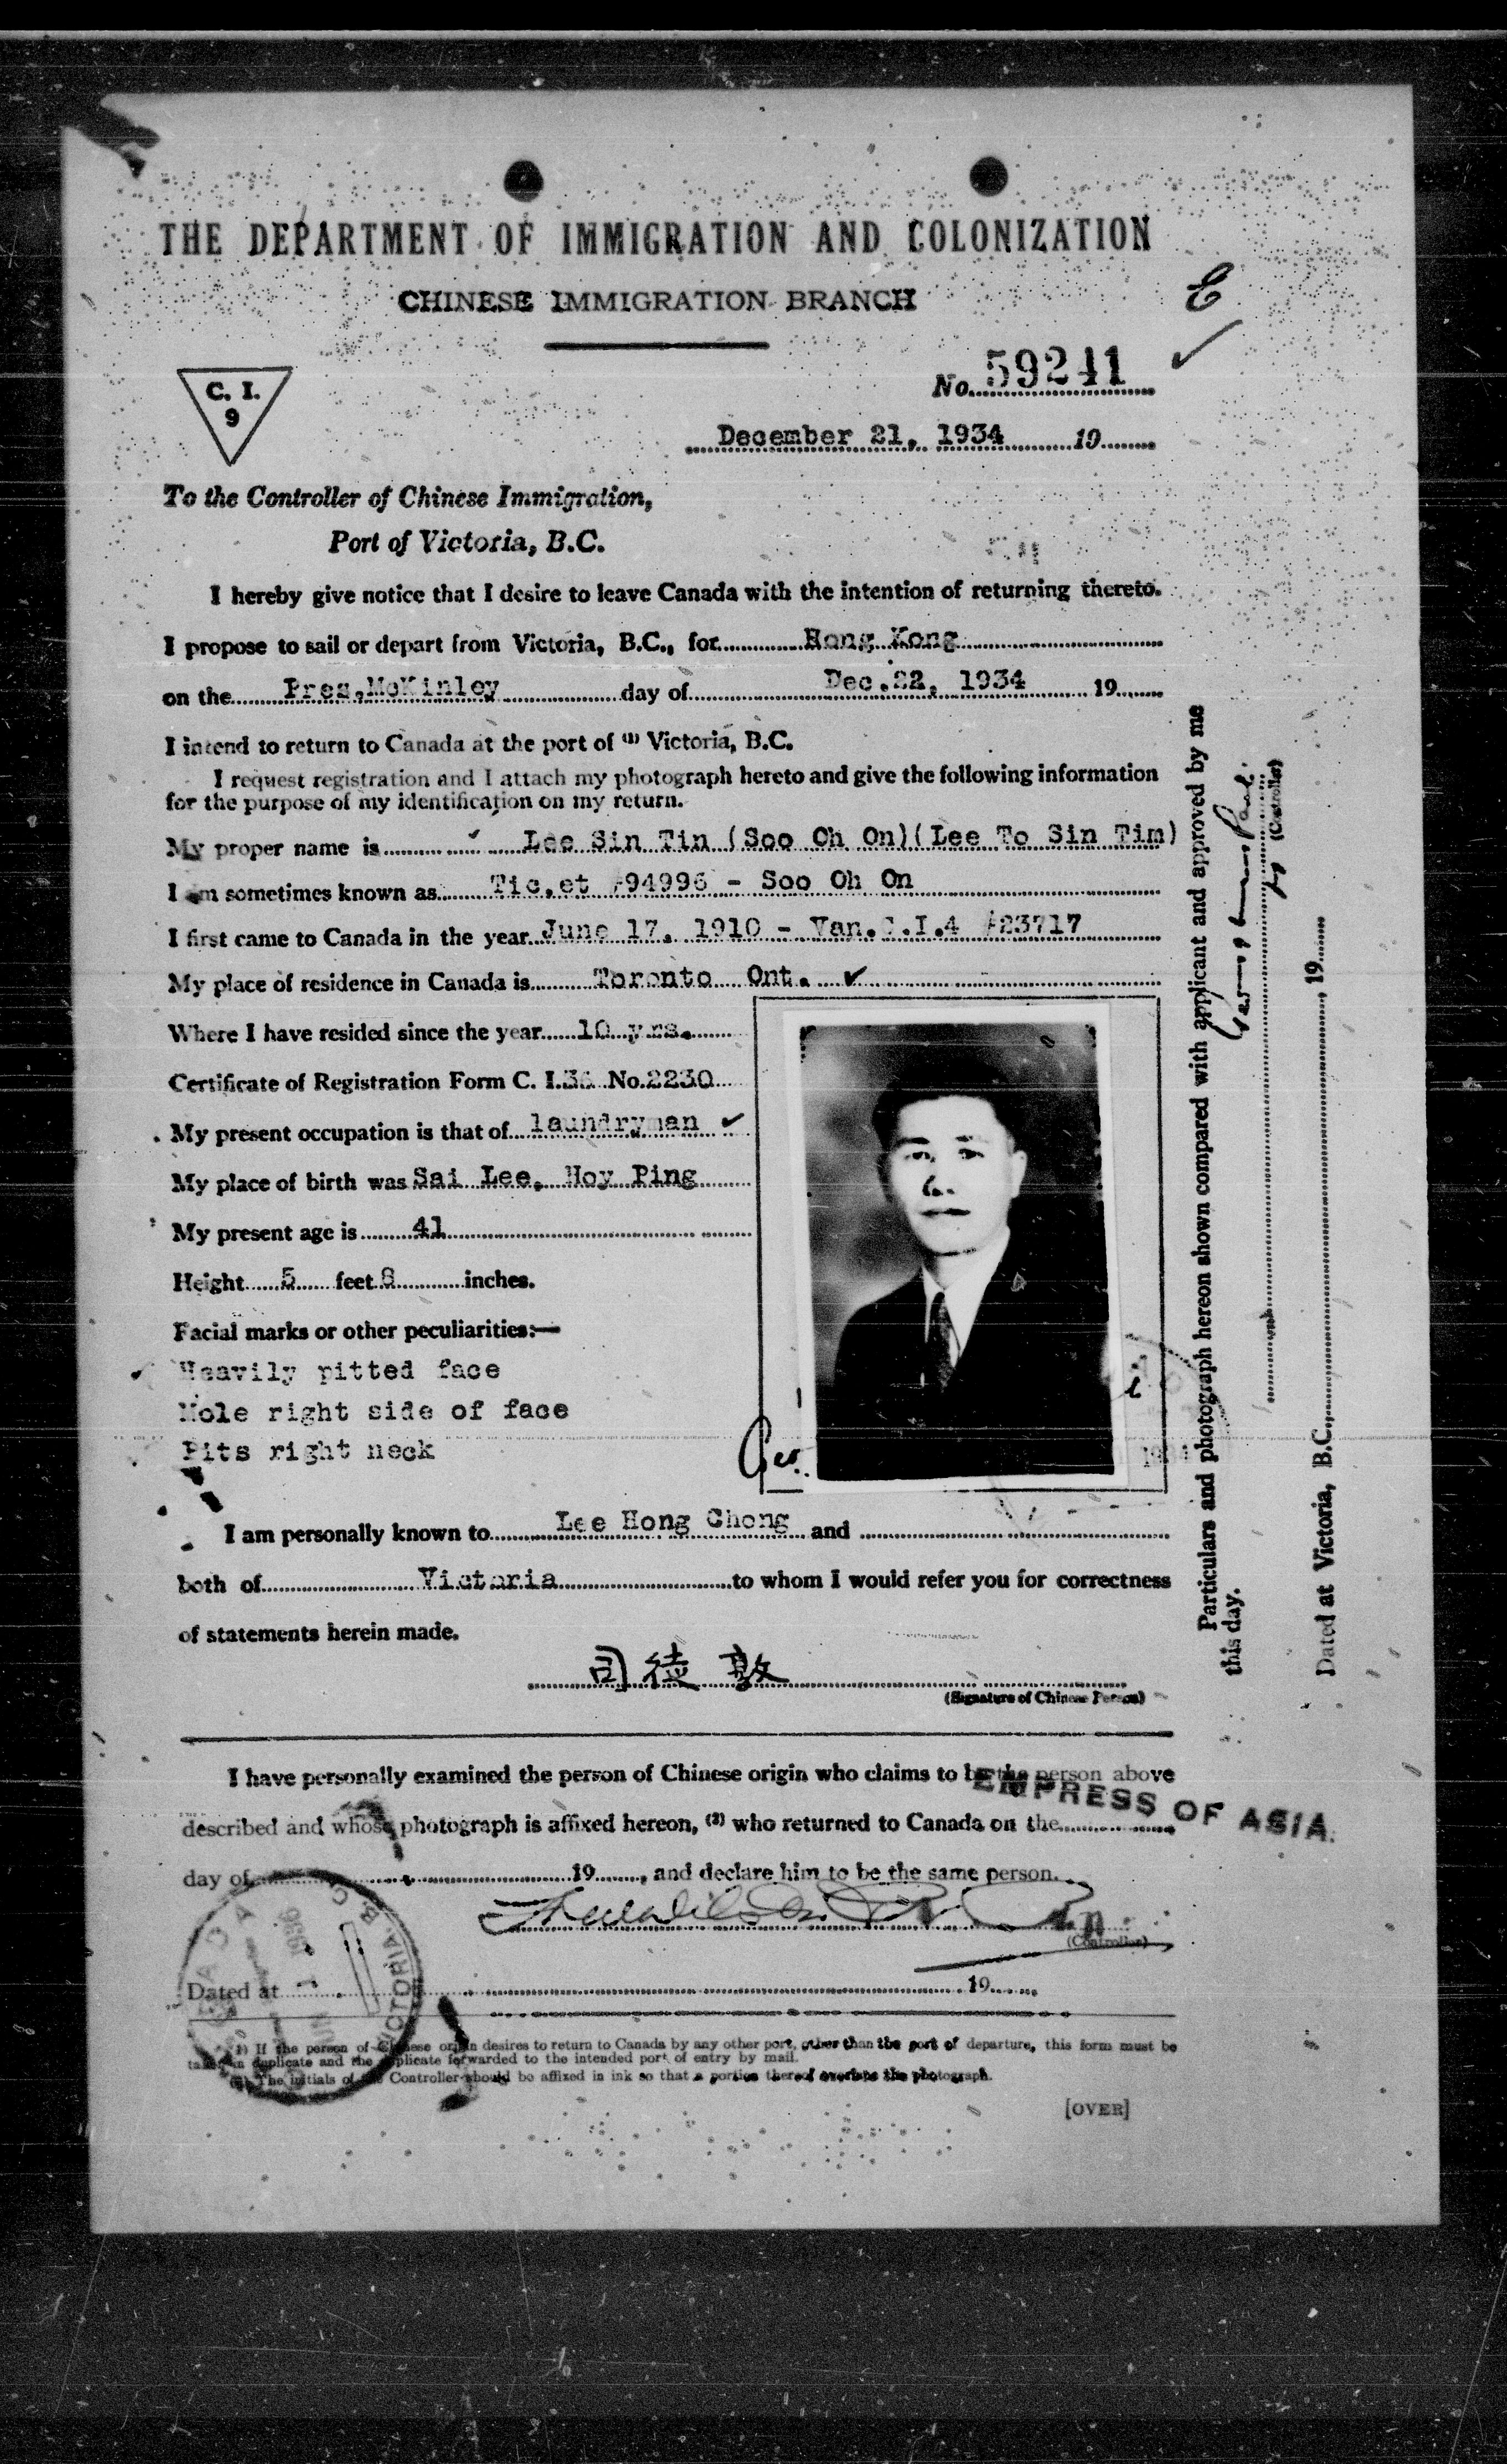 THE DEPARTMENT OF IMMIGRATION AND COLONIZATION
CHINESE IMMIGRATION BRANCH
E
C. I.
9
No. 59241
December 21, 1934 19
To the Controller of Chinese Immigration,
Port of Victoria, B.C.
I hereby give notice that I desire to leave Canada with the intention of returning thereto.
I propose to sail or depart from Victoria, B.C., for Hong Kong
on the Pres. McKinley day of Dec. 22, 1934 19
I intend to return to Canada at the port of (1) Victoria, B.C.
I request registration and I attach my photograph hereto and give the following information
for the purpose of my identification on my return.
My proper name is Lee Sin Tin (Soo Oh On)(Lee To Sin Tim)
I am sometimes known as Tic.et #94996 - Soo Oh On
I first came to Canada in the year June 17, 1910 - Van.C.I.4 #23717
My place of residence in Canada is Toronto Ont. ✓
Where I have resided since the year 10 yrs.
Certificate of Registration Form C. I. No. 2230
My present occupation is that of laundryman ✓
My place of birth was Sai Lee, Hoy Ping
My present age is 41
Height 5 feet 8 inches.
Facial marks or other peculiarities:—
Heavily pitted face
Mole right side of face
Pits right neck
I am personally known to Lee Hong Chong and
both of Victoria to whom I would refer you for correctness
of statements herein made.
司徒敦
(Signature of Chinese Person)
I have personally examined the person of Chinese origin who claims to be the person above
EMPRESS OF ASIA
described and whose photograph is affixed hereon, (2) who returned to Canada on the
day of 19 , and declare him to be the same person.
(Controller)
Dated at 19
(1) If the person of Chinese origin desires to return to Canada by any other port, other than the port of departure, this form must be
taken in duplicate and the duplicate forwarded to the intended port of entry by mail.
(2) The initials of the Controller should be affixed in ink so that a portion thereof overlaps the photograph.
[OVER]
Particulars and photograph hereon shown compared with applicant and approved by me
this day.
(Controller)
Dated at Victoria, B.C., 19
VICTORIA, B.C.